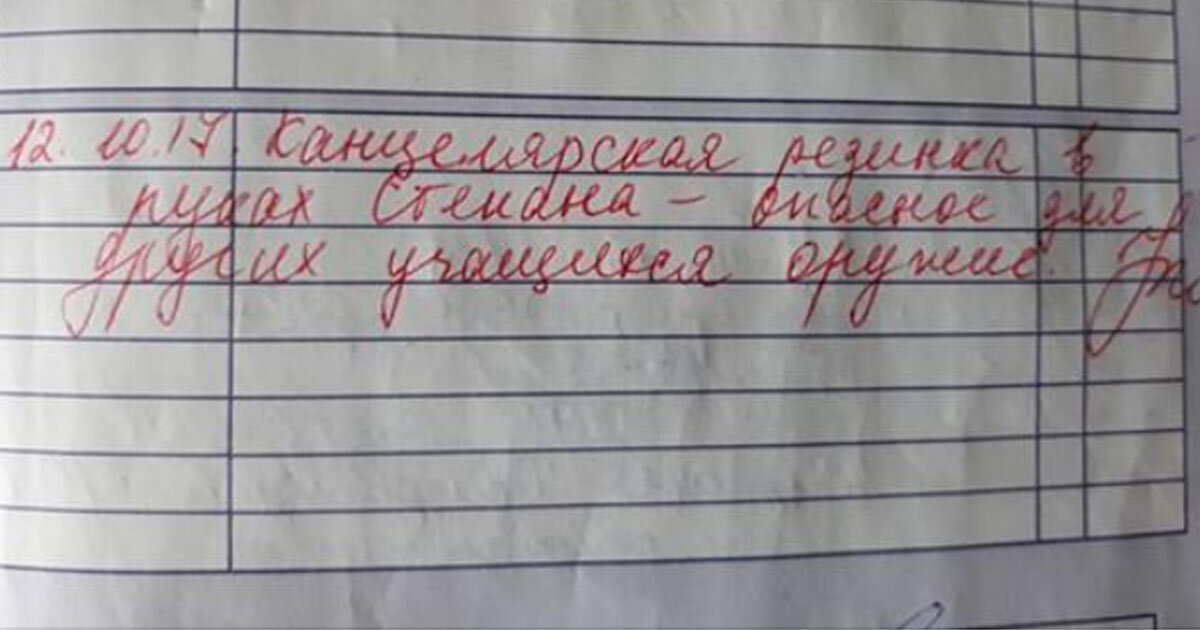 12.10.17 Канцелярская резинка в
руках Степана - опасное для
других учащихся оружие.